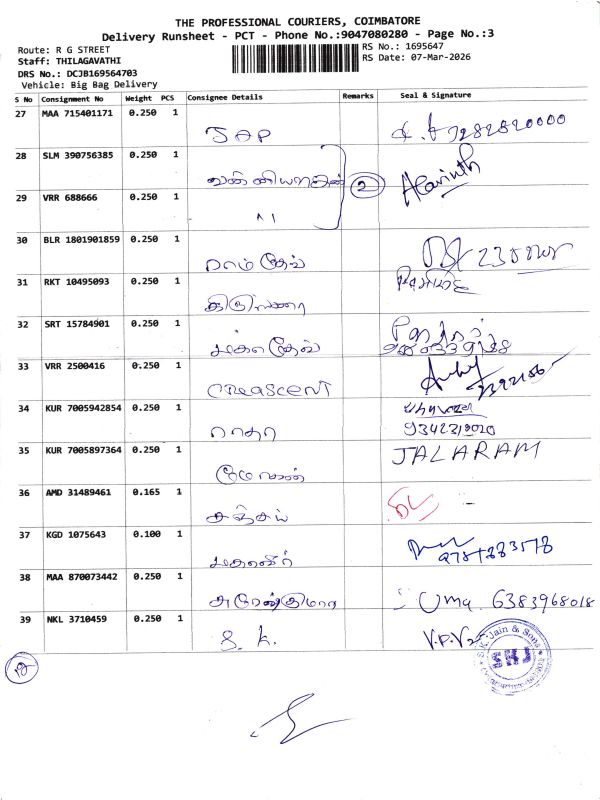 THE PROFESSIONAL COURIERS, COIMBATORE
Delivery Runsheet - PCT - Phone No.:9047080280 - Page No.:3
Route: R G STREET
RS No.: 1695647
Staff: THILAGAVATHI
RS Date: 07-Mar-2026
DRS No.: DCJB169564703
Vehicle: Big Bag Delivery
S No Consignment No Weight PCS Consignee Details Remarks Seal & Signature
27 MAA 715401171 0.250 1
28 SLM 390756385 0.250 1
2
29 VRR 688666 0.250 1
30 BLR 1801901859 0.250 1
ராம்தேவ்
31 RKT 10495093 0.250 1
32 SRT 15784901 0.250 1
33 VRR 2500416 0.250 1
Crescent
34 KUR 7005942854 0.250 1
ராதா
35 KUR 7005897364 0.250 1
JALARAM
36 AMD 31489461 0.165 1
சஞ்சய்
DC
37 KGD 1075643 0.100 1
38 MAA 870073442 0.250 1
Uma. 6383968018
39 NKL 3710459 0.250 1
S. K.
V.P.V
S.K. Jain & Sons
SKJ